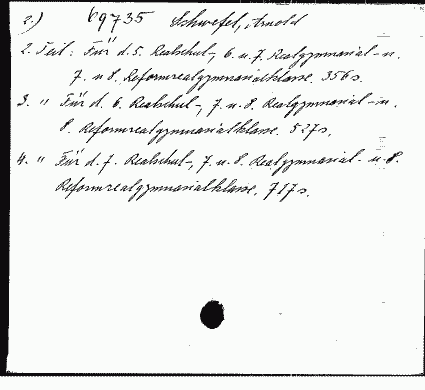 2.) 69735 Schwefel, Arnold
2. Teil: Für d. 5. Realschul-, 6. u. 7. Realgymnasial- u.
7. u 8. Reformrealgymnasialklasse. 356 s.
3. " Für d. 6. Realschul-, 7. u. 8. Realgymnasial- u.
8. Reformrealgymnasialklasse. 527 s.
4. " Für d. 7. Realschul-, 7. u. 8. Realgymnasial- u. 8.
Reformrealgymnasialklasse. 717 s.